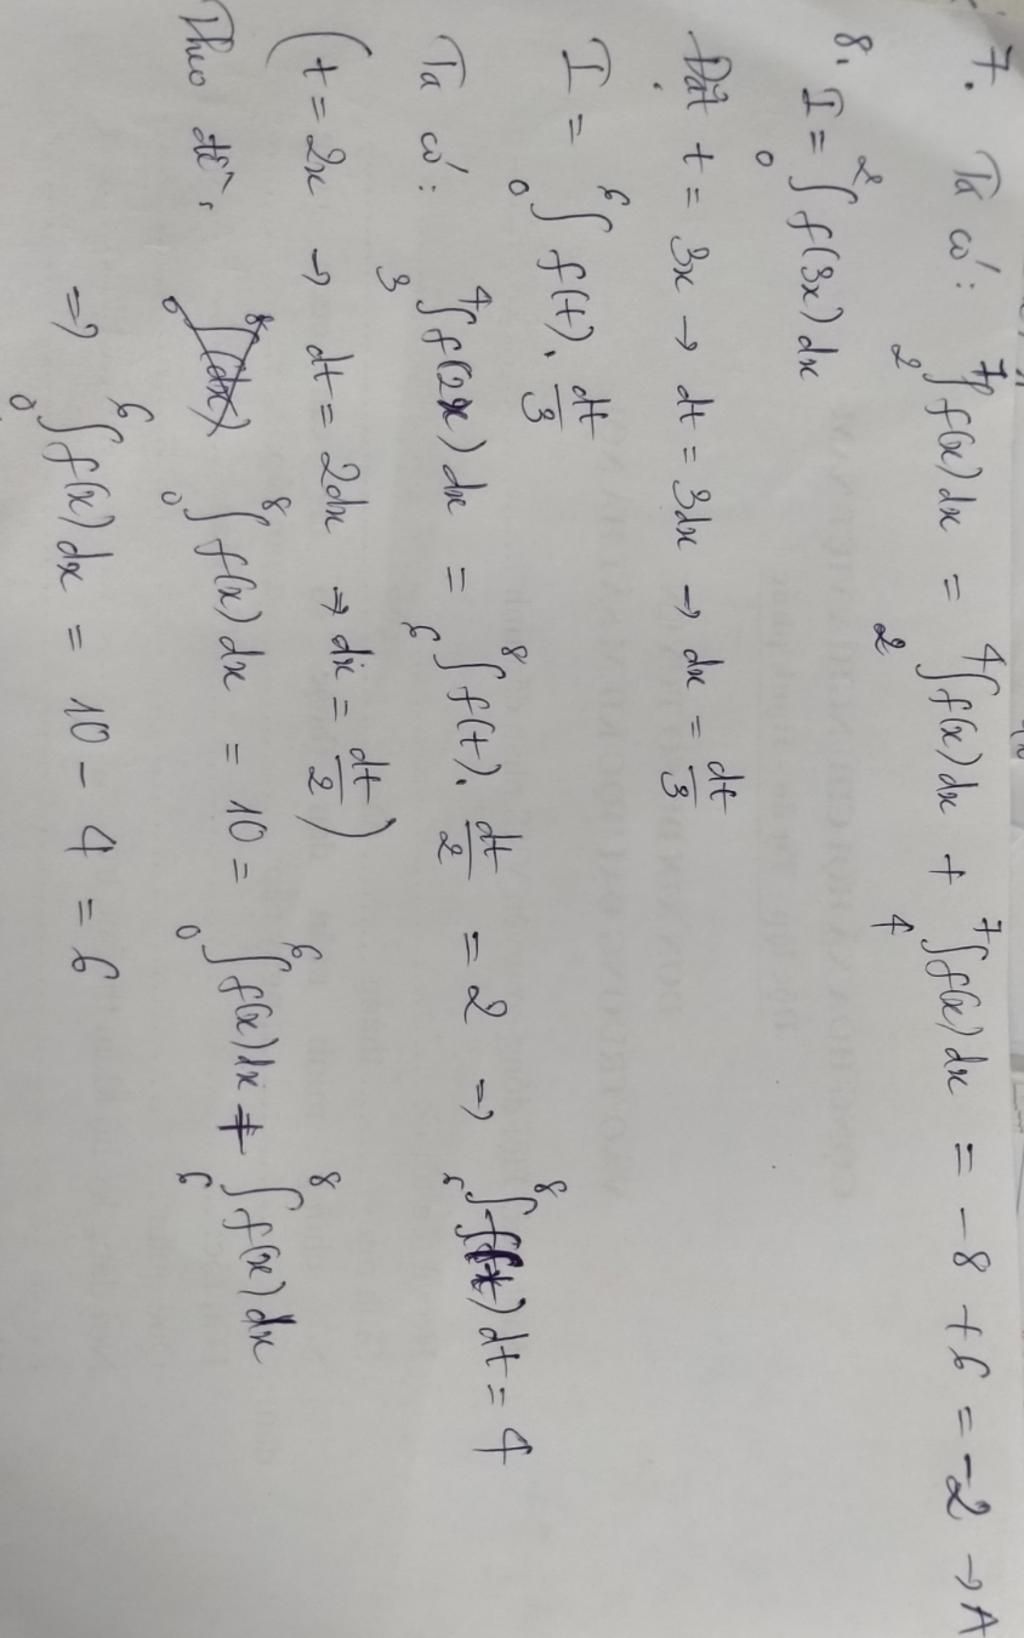 7. Ta có: ∫₂⁷ f(x)dx = ∫₂⁴ f(x)dx + ∫₄⁷ f(x)dx = -8 + 6 = -2 → A
8. I = ∫₀² f(3x)dx
Đặt t = 3x → dt = 3dx → dx = dt/3
I = ∫₀⁶ f(t). dt/3
Ta có: ∫₃⁴ f(2x)dx = ∫₆⁸ f(t). dt/2 = 2 => ∫₆⁸ f(t)dt = 4
(t = 2x → dt = 2dx => dx = dt/2)
Theo đề, ∫₀⁸ f(x)dx = 10 = ∫₀⁶ f(x)dx + ∫₆⁸ f(x)dx
=> ∫₀⁶ f(x)dx = 10 - 4 = 6